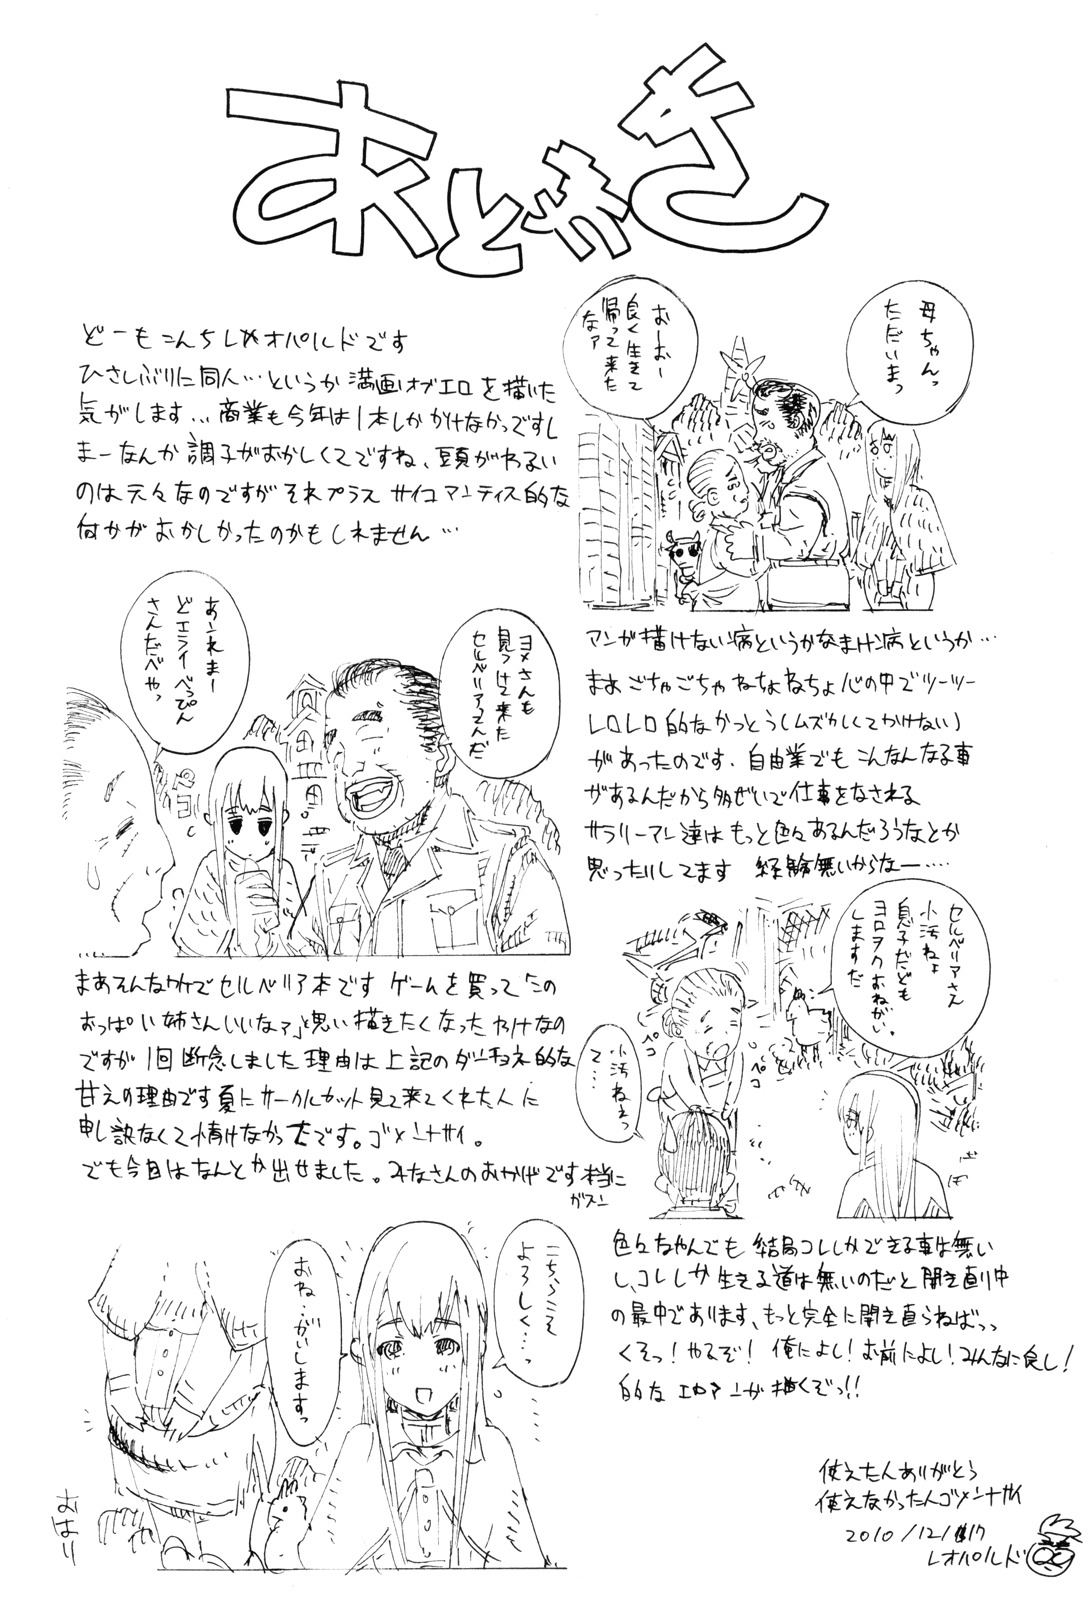 あとがき
どーもこんちレオパルドです
ひさしぶりに同人…というか漫画オブエロを描いた
気がします…商業も今年は1本しかかけなかっですし
まーなんか調子がおかしくてですね、頭がわるい
のは元々なのですがそれプラスサイコマンティス的な
何かがおかしかったのかもしれません…
母ちゃんっ
ただいまっ
おーおー
良く生きて
帰って来た
なァ
マンガ描けない病というかなまけ病というか…
まあごちゃごちゃねちょねちょ心の中でツーツー
レロレロ的なかっとう(ムズかしくてかけない)
があったのです、自由業でもこんなんなる事
があるんだから多ぜいで仕事をなされる
サラリーマン達はもっと色々あるんだろうなとか
思ったりしてます 経験無いからなー….
ヨメさんも
見つけて来た
セルベリアさんだ
あんれまー
どエライべっぴん
さんだべやっ
まあそんなワケでセルベリア本です ゲームを買って「この
おっぱい姉さんいいなァ」と思い描きたくなったわけなの
ですが1回断念しました理由は上記のダーチョネ的な
甘えの理由です夏にサークルカット見て来てくれた人に
申し訳なくて情けなかったです。ゴメンナサイ。
でも今回はなんとか出せました。みなさんのおかげです本当に
ガスン
セルベリアさん
小汚ねぇ
息子だども
ヨロヲクおねがい
しますだ
ペコ
ペコ
小汚ねぇっ
て…
ぽ
ぽ
色々なやんでも結局コレしかできる事は無い
し、コレしか生きる道は無いのだと開き直り中
の最中であります、もっと完全に開き直らねばっっ
くそっ!やるぞ! 俺によし!お前によし!みんなに良し!
的なエロマンガ描くぞっ!!
こちらこそ
よろしく…っ
おね…がいしますっ
おはり
使えたんありがとう
使えなかったんゴメンナサイ
2010/12/17
レオパルド